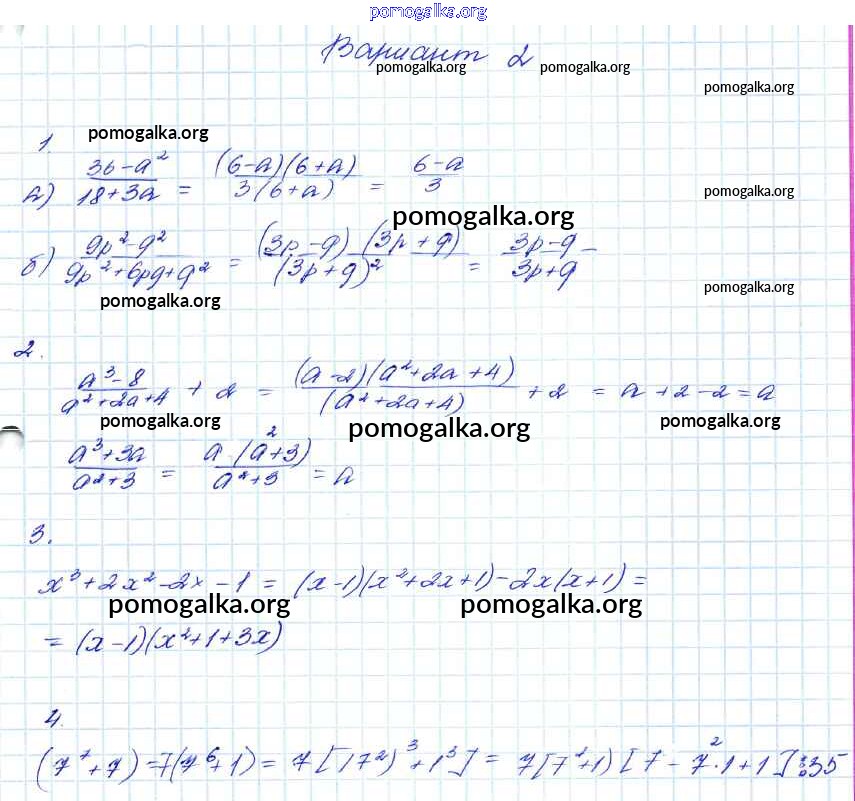 pomogalka.org
Вариант 2
pomogalka.org pomogalka.org
pomogalka.org
1. pomogalka.org
а) (36-a²)/(18+3a) = ((6-a)(6+a))/(3(6+a)) = (6-a)/3
pomogalka.org
б) (9p²-q²)/(9p²+6pq+q²) = ((3p-q)(3p+q))/((3p+q)²) = (3p-q)/(3p+q) -
pomogalka.org pomogalka.org
2.
(a³-8)/(a²+2a+4) + 2 = ((a-2)(a²+2a+4))/((a²+2a+4)) + 2 = a+2-2=a
pomogalka.org pomogalka.org pomogalka.org
(a³+3a)/(a²+3) = (a(a²+3))/(a²+3) = a
3.
x³+2x²-2x-1 = (x-1)(x²+2x+1)-2x(x+1)=
pomogalka.org pomogalka.org
= (x-1)(x²+1+3x)
4.
(7⁷+7)=7(7⁶+1) = 7[(7²)³+1³] = 7[7²+1)[7-7²·1+1]⋮35